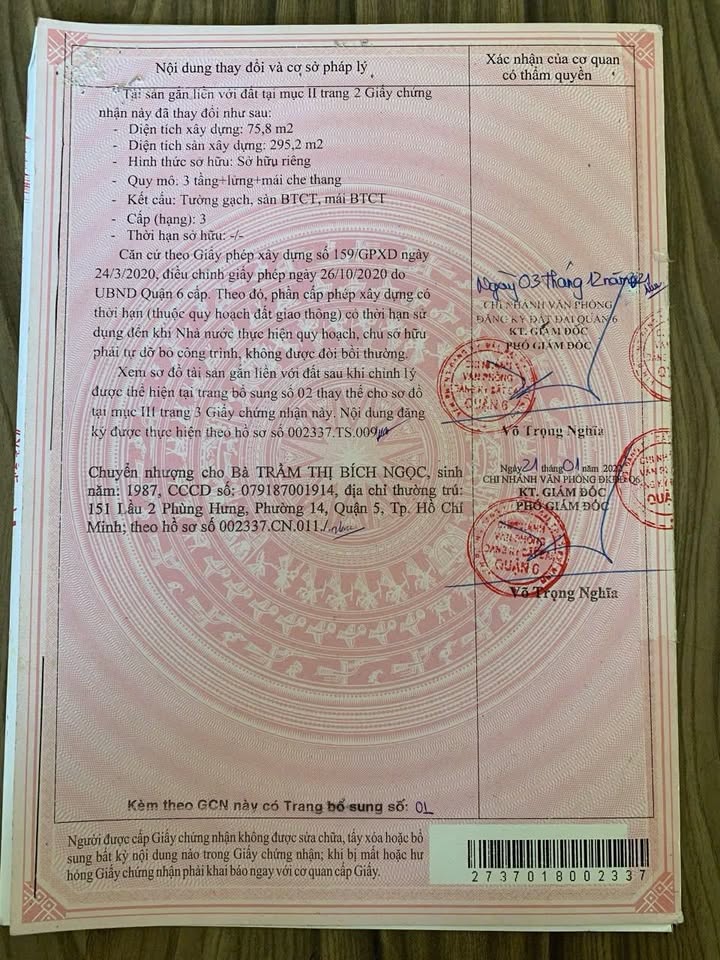 Nội dung thay đổi và cơ sở pháp lý
Xác nhận của cơ quan
có thẩm quyền
Tài sản gắn liền với đất tại mục II trang 2 Giấy chứng
nhận này đã thay đổi như sau:
- Diện tích xây dựng: 75,8 m2
- Diện tích sàn xây dựng: 295,2 m2
- Hình thức sở hữu: Sở hữu riêng
- Quy mô: 3 tầng+lửng+mái che thang
- Kết cấu: Tường gạch, sàn BTCT, mái BTCT
- Cấp (hạng): 3
- Thời hạn sở hữu: -/-
Căn cứ theo Giấy phép xây dựng số 159/GPXD ngày
24/3/2020, điều chỉnh giấy phép ngày 26/10/2020 do
UBND Quận 6 cấp. Theo đó, phần cấp phép xây dựng có
thời hạn (thuộc quy hoạch đất giao thông) có thời hạn sử
dụng đến khi Nhà nước thực hiện quy hoạch, chủ sở hữu
phải tự dỡ bỏ công trình, không được đòi bồi thường.
Xem sơ đồ tài sản gắn liền với đất sau khi chỉnh lý
được thể hiện tại trang bổ sung số 02 thay thế cho sơ đồ
tại mục III trang 3 Giấy chứng nhận này. Nội dung đăng
ký được thực hiện theo hồ sơ số 002337.TS.009
Ngày 03 tháng 12 năm
CHI NHÁNH VĂN PHÒNG
ĐĂNG KÝ ĐẤT ĐAI QUẬN 6
KT. GIÁM ĐỐC
PHÓ GIÁM ĐỐC
QUẬN 6
Võ Trọng Nghĩa
Chuyển nhượng cho Bà TRẦM THỊ BÍCH NGỌC, sinh
năm: 1987, CCCD số: 079187001914, địa chỉ thường trú:
151 Lầu 2 Phùng Hưng, Phường 14, Quận 5, Tp. Hồ Chí
Minh; theo hồ sơ số 002337.CN.011./.
Ngày 21 tháng 01 năm
CHI NHÁNH VĂN PHÒNG ĐKĐĐ Q6
KT. GIÁM ĐỐC
PHÓ GIÁM ĐỐC
CHI NHÁNH
VĂN PHÒNG
QUẬN 6
Võ Trọng Nghĩa
Kèm theo GCN này có Trang bổ sung số: 01
Người được cấp Giấy chứng nhận không được sửa chữa, tẩy xóa hoặc bổ
sung bất kỳ nội dung nào trong Giấy chứng nhận; khi bị mất hoặc hư
hỏng Giấy chứng nhận phải khai báo ngay với cơ quan cấp Giấy.
2737018002337